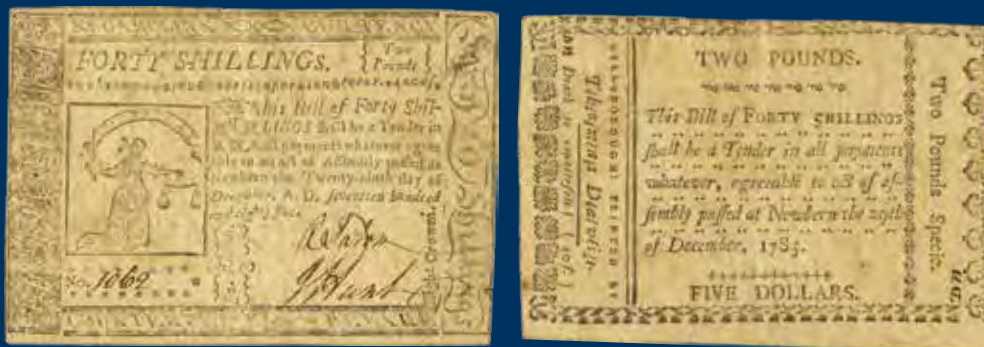 FORTY SHILLINGS. { Two Pounds }
This Bill of Forty Shil-
LINGS shall be a Tender in
all payments whatever agree-
able to an act of Assembly passed at
Newbern the Twenty-ninth day of
December, A. D. seventeen hundred
and eighty five.
No. 1069
Hunt
Eight Crowns.
TWO POUNDS.
This Bill of FORTY SHILLINGS
shall be a Tender in all payments
whatever, agreeable to act of as-
sembly passed at Newbern the 29th
of December, 1785.
FIVE DOLLARS.
Two Pounds Specie.
HILLSBOROUGH: PRINTED BY
Thomas Davis